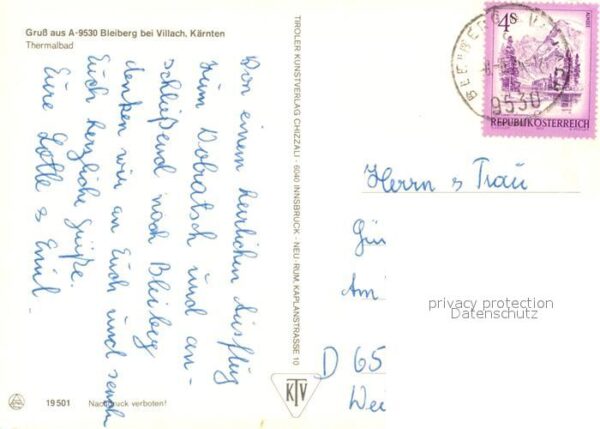 Gruß aus A-9530 Bleiberg bei Villach, Kärnten
Thermalbad
Von einem herrlichen Ausflug
zum Dobratsch und an-
schließend nach Bleiberg
denken wir an Euch und senden
Euch herzliche Grüße.
Eure Lotte & Emil
TIROLER KUNSTVERLAG CHIZZALI · 6040 INNSBRUCK - NEU-RUM, KAPLANSTRASSE 10
4S
REPUBLIK ÖSTERREICH
9530
Herrn & Frau
Gün
Am
privacy protection
Datenschutz
D 65
Wei
KTV
19501 Nachdruck verboten!